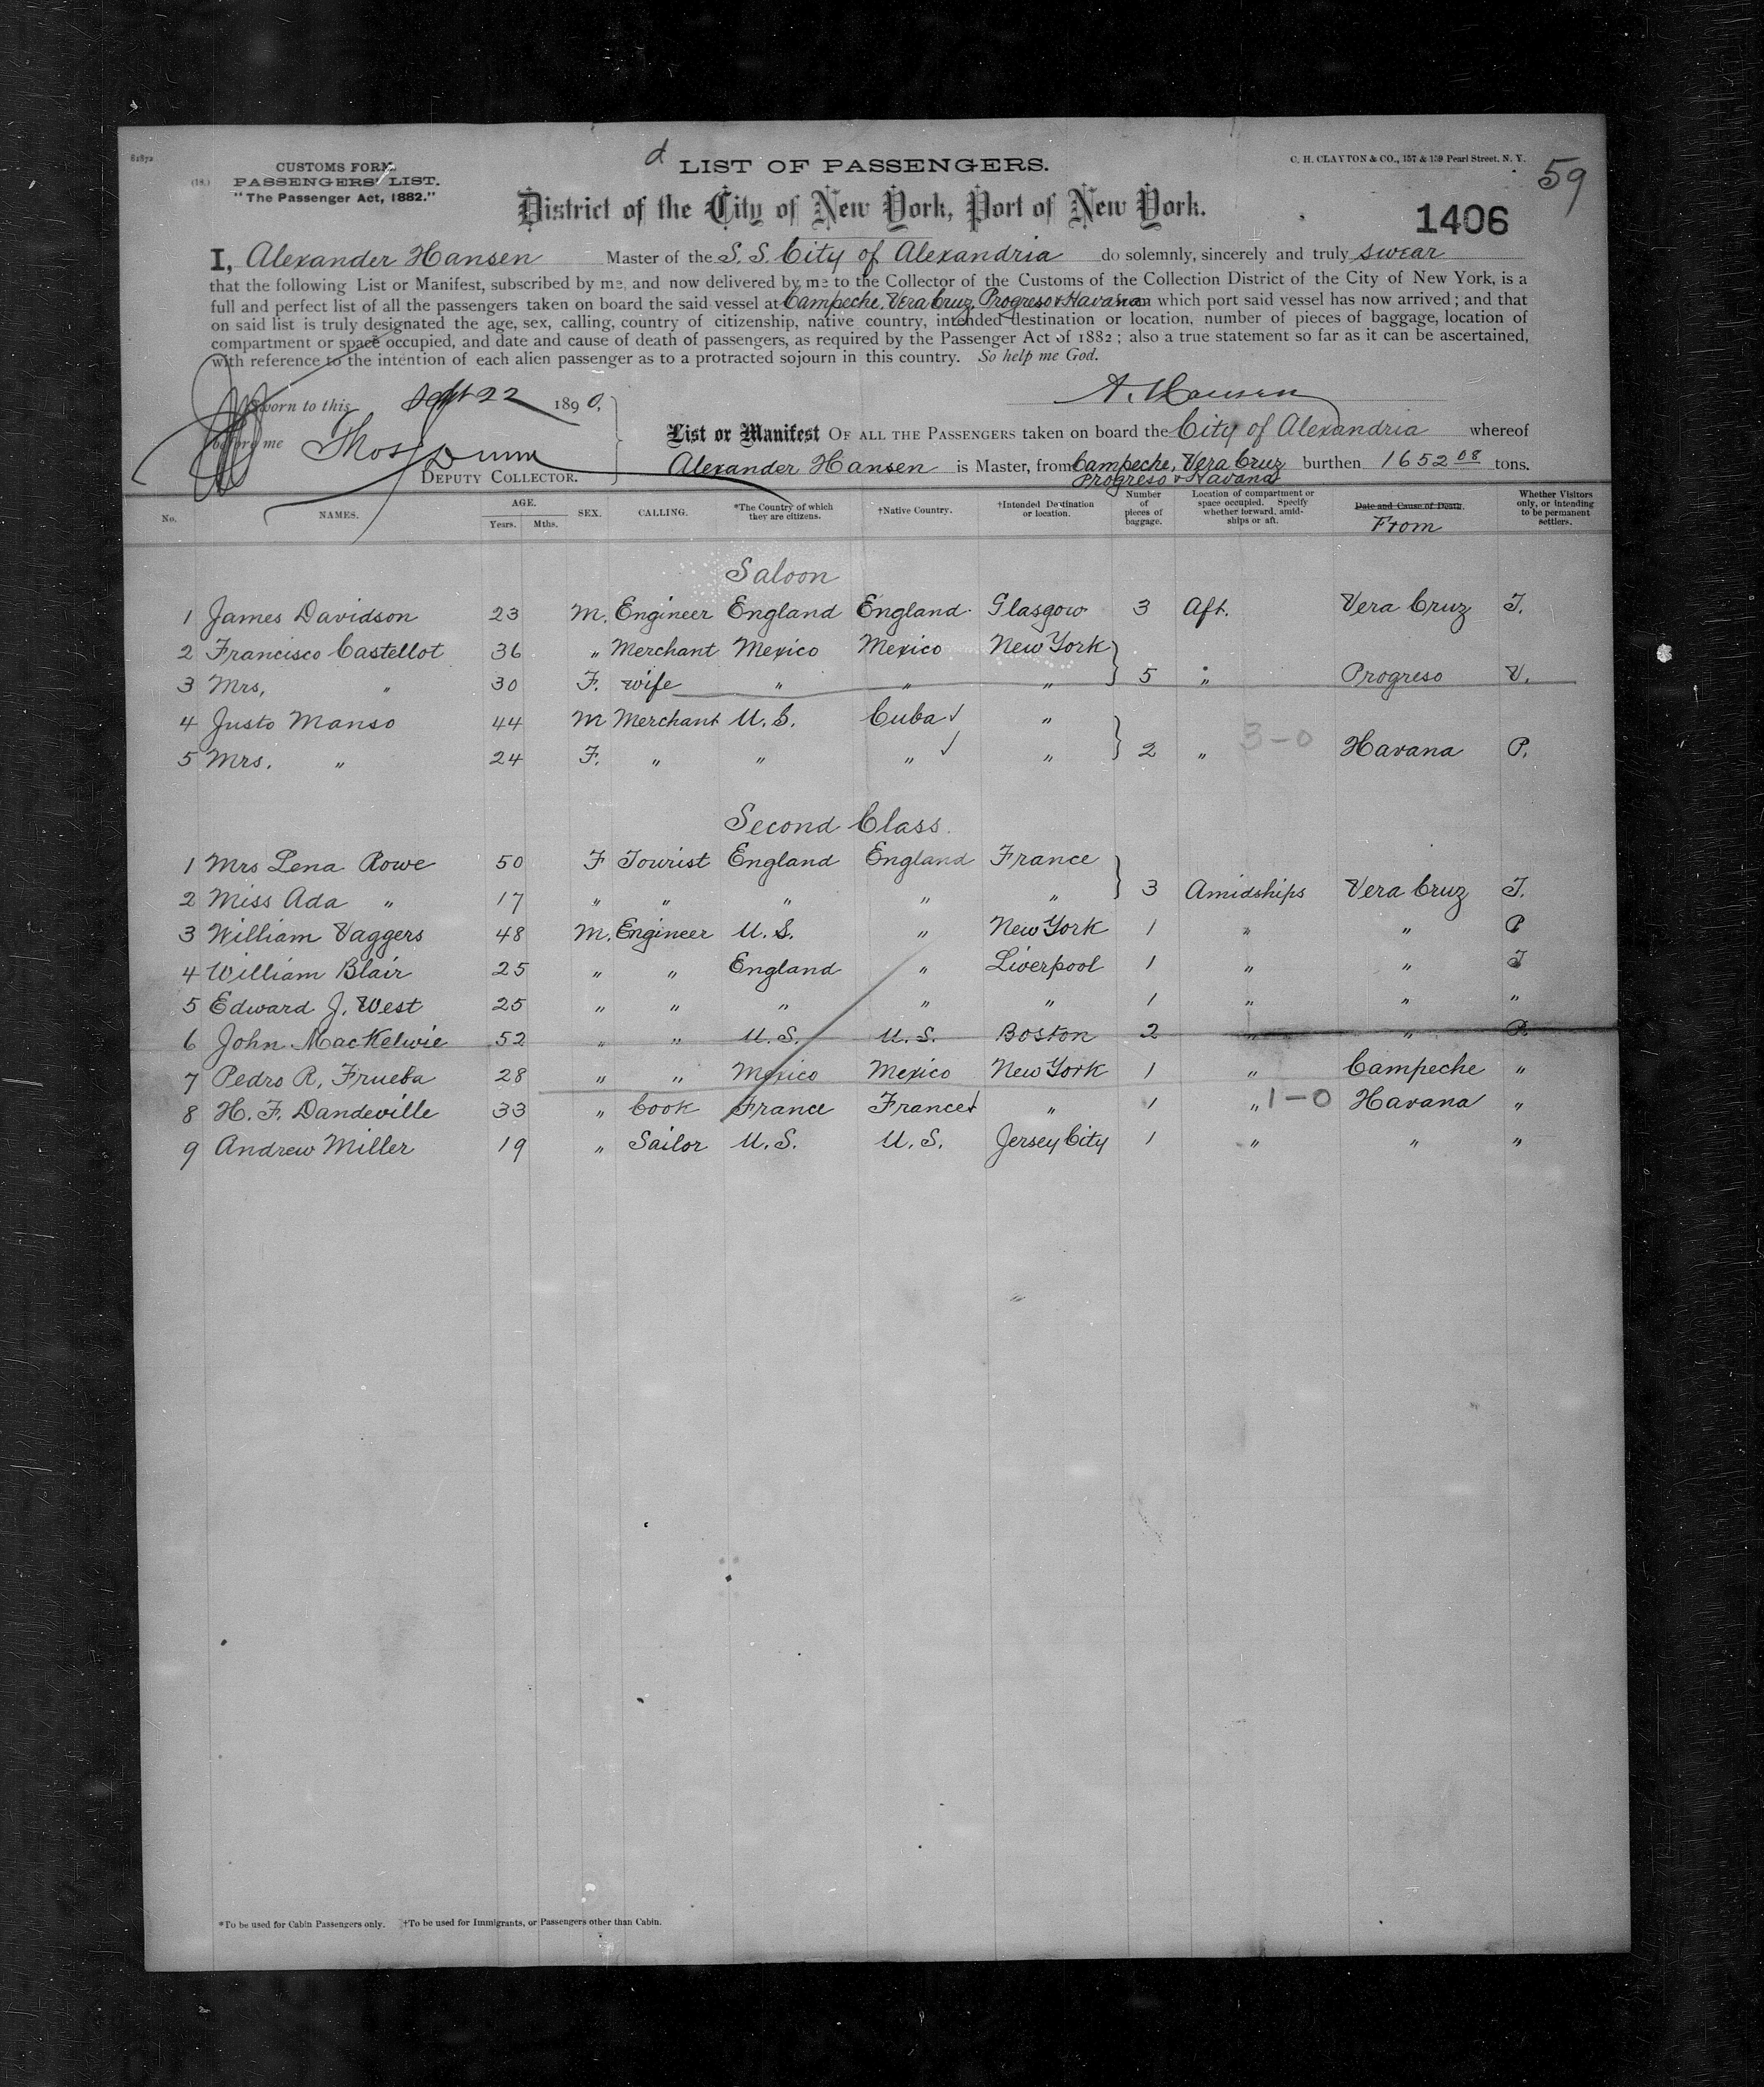 82872
CUSTOMS FORM.
(18.) PASSENGERS' LIST.
"The Passenger Act, 1882."
LIST OF PASSENGERS.
C. H. CLAYTON & CO., 157 & 159 Pearl Street, N. Y.
59
District of the City of New York, Port of New York.
1406
I, Alexander Hansen Master of the S. S. City of Alexandria do solemnly, sincerely and truly swear
that the following List or Manifest, subscribed by me, and now delivered by me to the Collector of the Customs of the Collection District of the City of New York, is a
full and perfect list of all the passengers taken on board the said vessel at Campeche, Vera Cruz, Progreso & Havana on which port said vessel has now arrived; and that
on said list is truly designated the age, sex, calling, country of citizenship, native country, intended destination or location, number of pieces of baggage, location of
compartment or space occupied, and date and cause of death of passengers, as required by the Passenger Act of 1882; also a true statement so far as it can be ascertained,
with reference to the intention of each alien passenger as to a protracted sojourn in this country. So help me God.
Sworn to this Sept 22 1890, A. Hansen
before me Thos Dunn
DEPUTY COLLECTOR.
List or Manifest OF ALL THE PASSENGERS taken on board the City of Alexandria whereof
Alexander Hansen is Master, from Campeche, Vera Cruz burthen 1652 08 tons.
Progreso & Havana
No. NAMES. AGE. Years. Mths. SEX. CALLING. *The Country of which they are citizens. †Native Country. †Intended Destination or location. Number of pieces of baggage. Location of compartment or space occupied. Specify whether forward, amidships or aft. Date and Cause of Death. From Whether Visitors only, or intending to be permanent settlers.
Saloon
1 James Davidson 23 M. Engineer England England Glasgow 3 Aft. Vera Cruz T.
2 Francisco Castellot 36 " Merchant Mexico Mexico New York
3 Mrs, " 30 F. wife " " " 5 " Progreso V.
4 Justo Manso 44 M Merchant U.S. Cuba ✓ "
5 Mrs. " 24 F. " " " ✓ " 2 " 3-0 Havana P.
Second Class.
1 Mrs Lena Rowe 50 F Tourist England England France
2 Miss Ada " 17 " " " " " 3 Amidships Vera Cruz T.
3 William Vaggers 48 M. Engineer U.S. " New York 1 " " P
4 William Blair 25 " " England " Liverpool 1 " " T
5 Edward J. West 25 " " " " " 1 " " "
6 John MacKelwie 52 " " U.S. U.S. Boston 2 " " P.
7 Pedro R, Frueba 28 " " Mexico Mexico New York 1 " Campeche "
8 H. F. Dandeville 33 " Cook France France ✓ " 1 " 1-0 Havana "
9 Andrew Miller 19 " Sailor U.S. U.S. Jersey City 1 " " "
*To be used for Cabin Passengers only. †To be used for Immigrants, or Passengers other than Cabin.